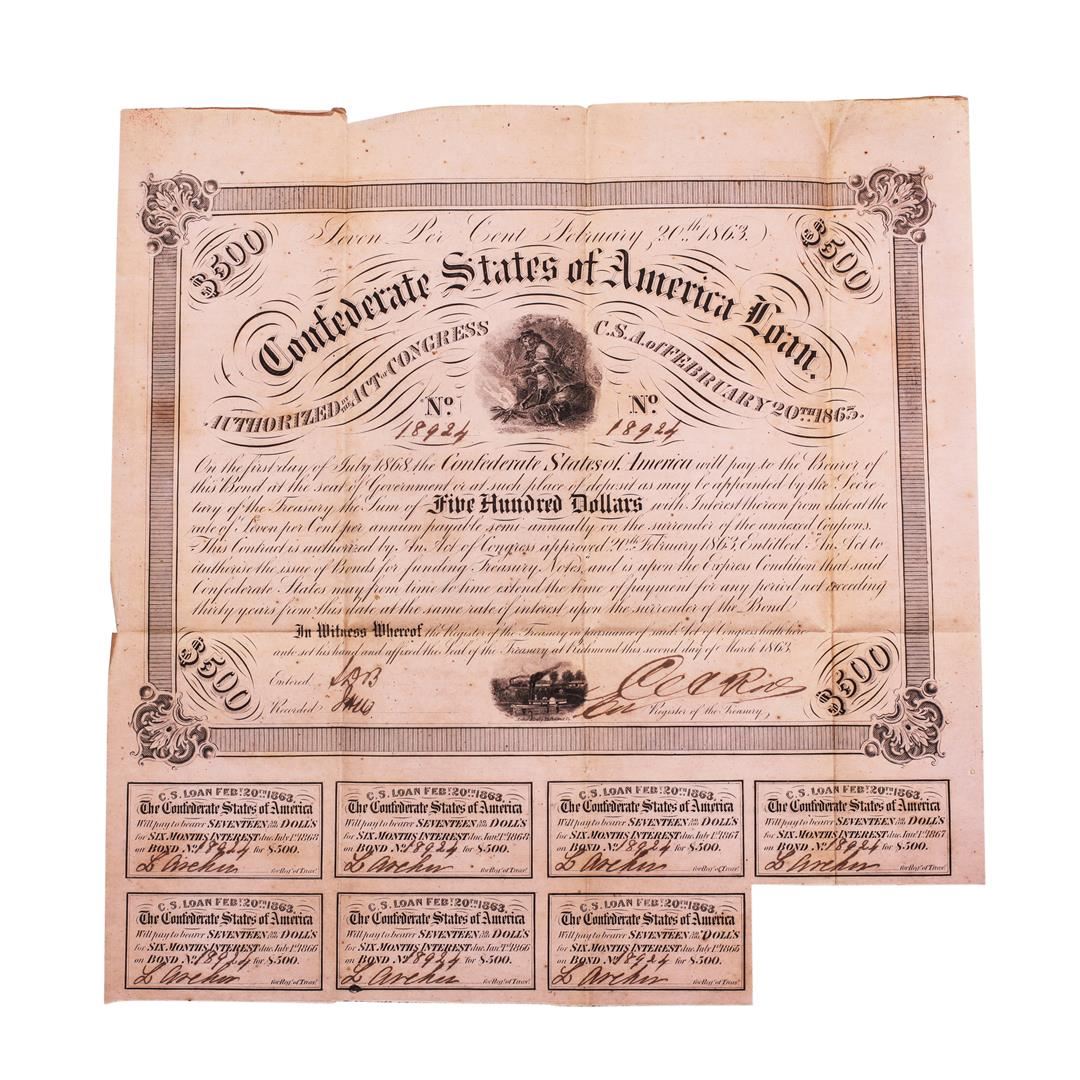 $500
Seven Per Cent February 20th 1863.
$500
Confederate States of America Loan.
AUTHORIZED BY THE ACT of CONGRESS C.S.A. of FEBRUARY 20TH 1863.
No. No.
18924 18924
On the first day of July 1868 the Confederate States of America will pay to the Bearer of
this Bond at the seat of Government or at such place of deposit as may be appointed by the Secre
tary of the Treasury the Sum of Five Hundred Dollars with Interest thereon from date at the
rate of Seven per Cent per annum payable semi annually on the surrender of the annexed Coupons.
This Contract is authorized by An Act of Congress approved 20th February 1863, Entitled "An Act to
authorise the issue of Bonds for funding Treasury Notes," and is upon the Express Condition that said
Confederate States may from time to time extend the time of payment for any period not exceeding
thirty years from this date at the same rate of interest upon the surrender of the Bond.
In Witness Whereof the Register of the Treasury in pursuance of said Act of Congress hath here
unto set his hand and affixed the Seal of the Treasury at Richmond this second day of March 1863
$500
Entered
Recorded
Register of the Treasury
$500
C.S. LOAN FEBY 20TH 1863, C.S. LOAN FEBY 20TH 1863, C.S. LOAN FEBY 20TH 1863, C.S. LOAN FEBY 20TH 1863,
The Confederate States of America The Confederate States of America The Confederate States of America The Confederate States of America
Will pay to bearer SEVENTEEN DOLL'S Will pay to bearer SEVENTEEN DOLL'S Will pay to bearer SEVENTEEN DOLL'S Will pay to bearer SEVENTEEN DOLL'S
for SIX MONTHS INTEREST due July 1st 1868 for SIX MONTHS INTEREST due Jany 1st 1868 for SIX MONTHS INTEREST due July 1st 1867 for SIX MONTHS INTEREST due Jany 1st 1867
on BOND No. 18924 for $500. on BOND No. 18924 for $500. on BOND No. 18924 for $500. on BOND No. 18924 for $500.
L Archer for Reg'r of Treas'y L Archer for Reg'r of Treas'y L Archer for Reg'r of Treas'y L Archer for Reg'r of Treas'y
C.S. LOAN FEBY 20TH 1863, C.S. LOAN FEBY 20TH 1863, C.S. LOAN FEBY 20TH 1863,
The Confederate States of America The Confederate States of America The Confederate States of America
Will pay to bearer SEVENTEEN DOLL'S Will pay to bearer SEVENTEEN DOLL'S Will pay to bearer SEVENTEEN DOLL'S
for SIX MONTHS INTEREST due July 1st 1866 for SIX MONTHS INTEREST due Jany 1st 1866 for SIX MONTHS INTEREST due July 1st 1865
on BOND No. 18924 for $500. on BOND No. 18924 for $500. on BOND No. 18924 for $500.
L Archer for Reg'r of Treas'y L Archer for Reg'r of Treas'y L Archer for Reg'r of Treas'y